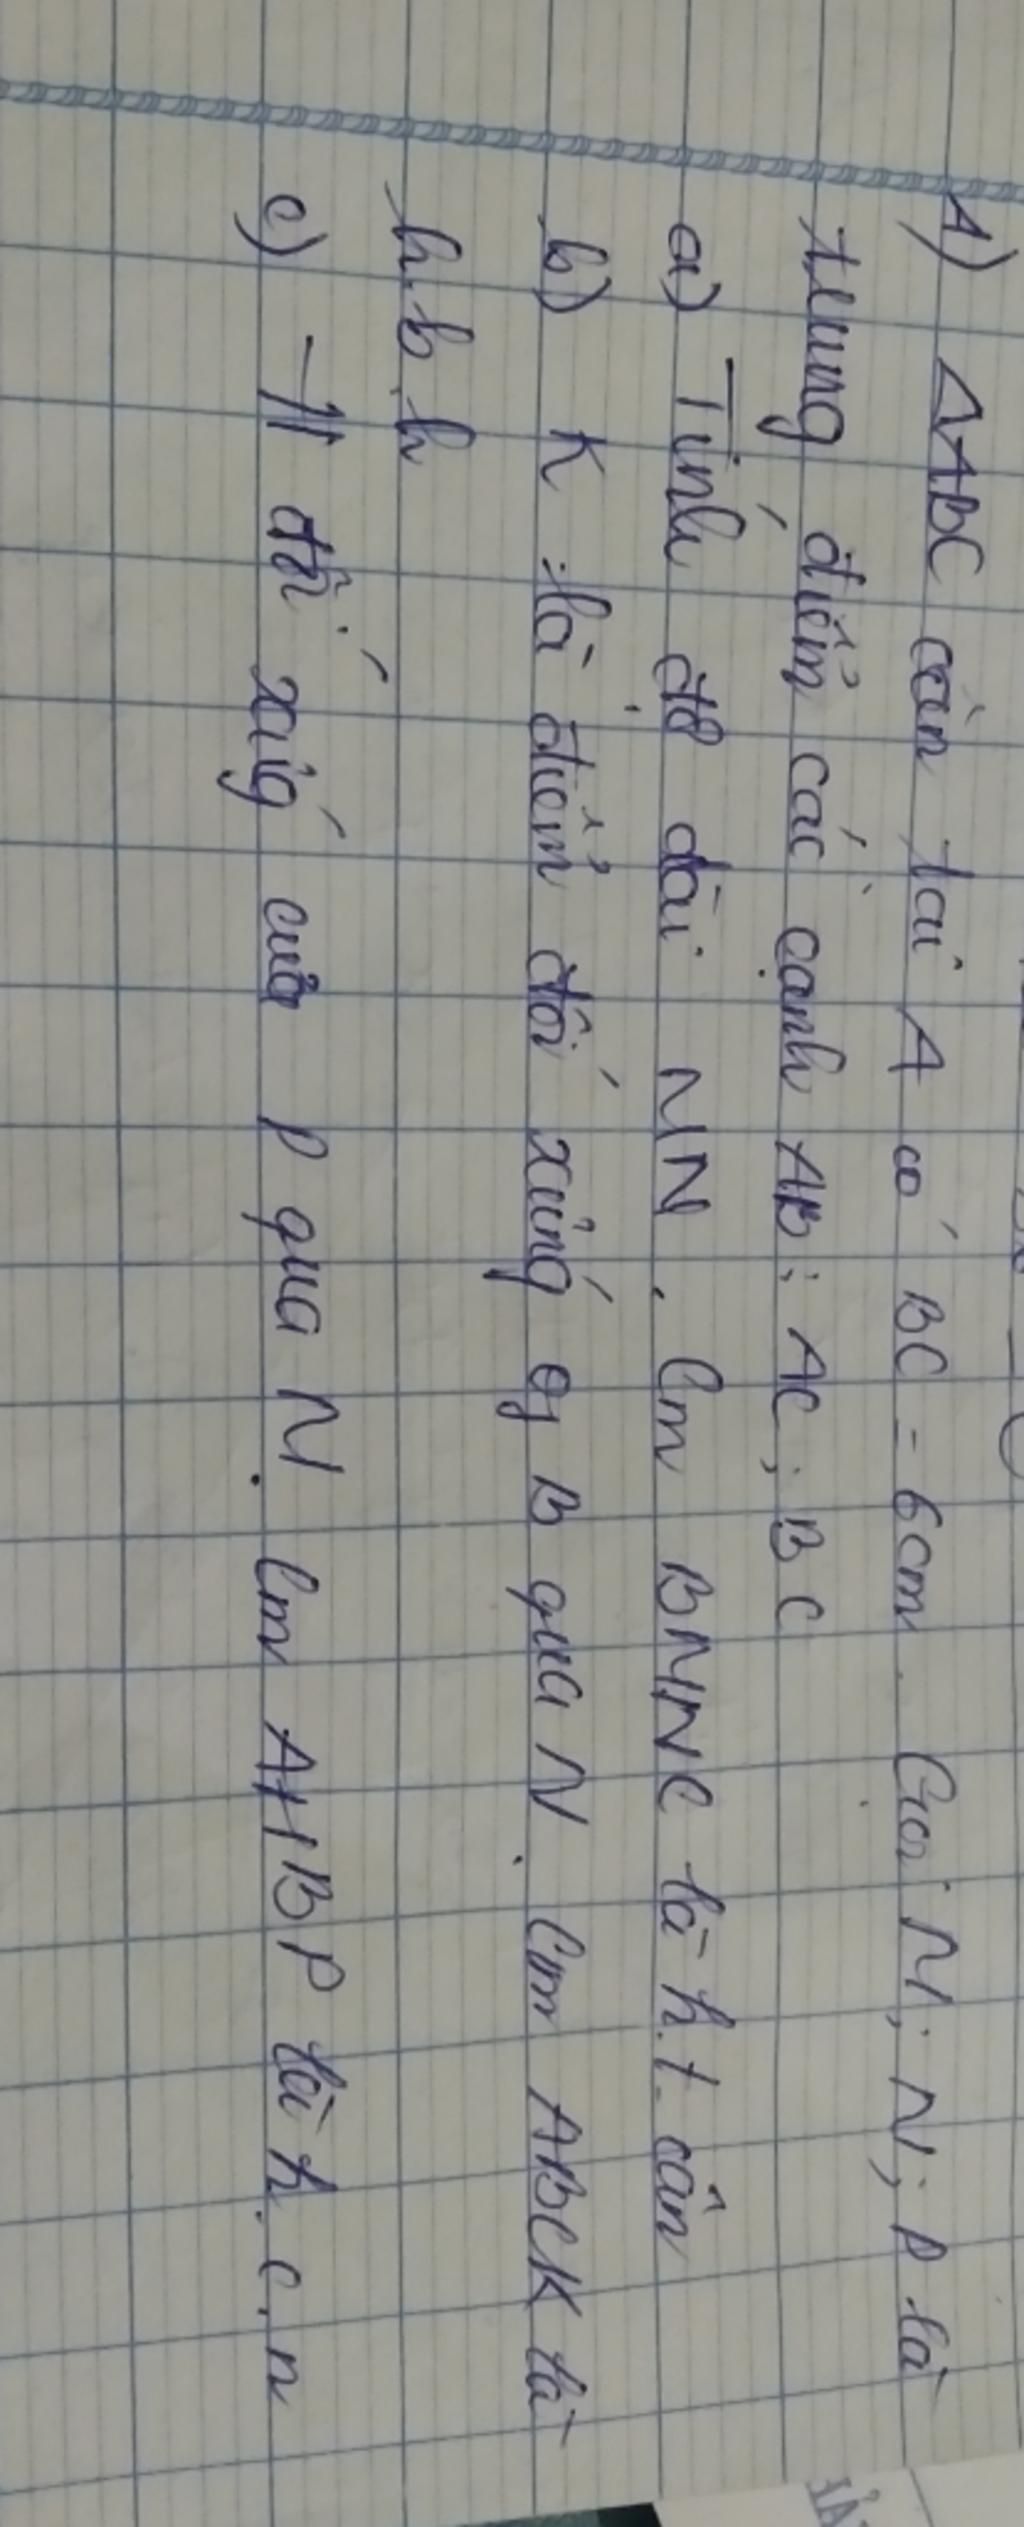 1) ΔABC cân tại A có BC = 6cm. Gọi M; N; P là
trung điểm các cạnh AB; AC; BC
a) Tính độ dài MN. Cm BMNC là h.t cân
b) K là điểm đối xứng of B qua N. Cm ABCK là
h.b.h
c) H đối xứng của P qua M. Cm AHBP là h.c.n